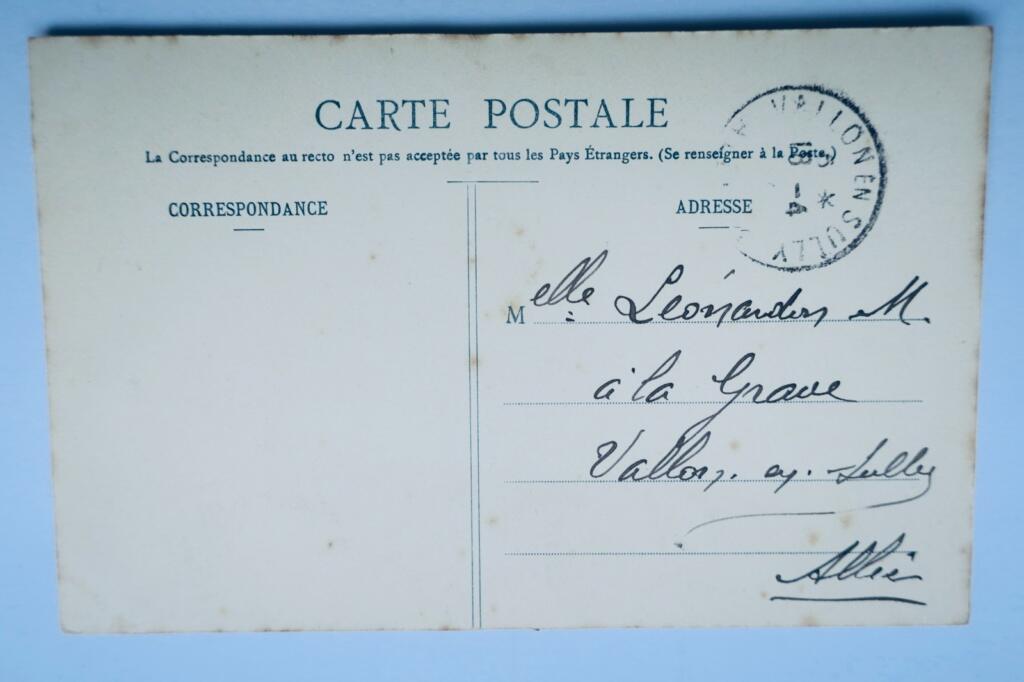 CARTE POSTALE
La Correspondance au recto n'est pas acceptée par tous les Pays Étrangers. (Se renseigner à la Poste.)
CORRESPONDANCE
ADRESSE
VALLON EN SULLY
18 -4
*
Melle Léonardon M.
à la Grave
Vallon. en. Sully
Allier